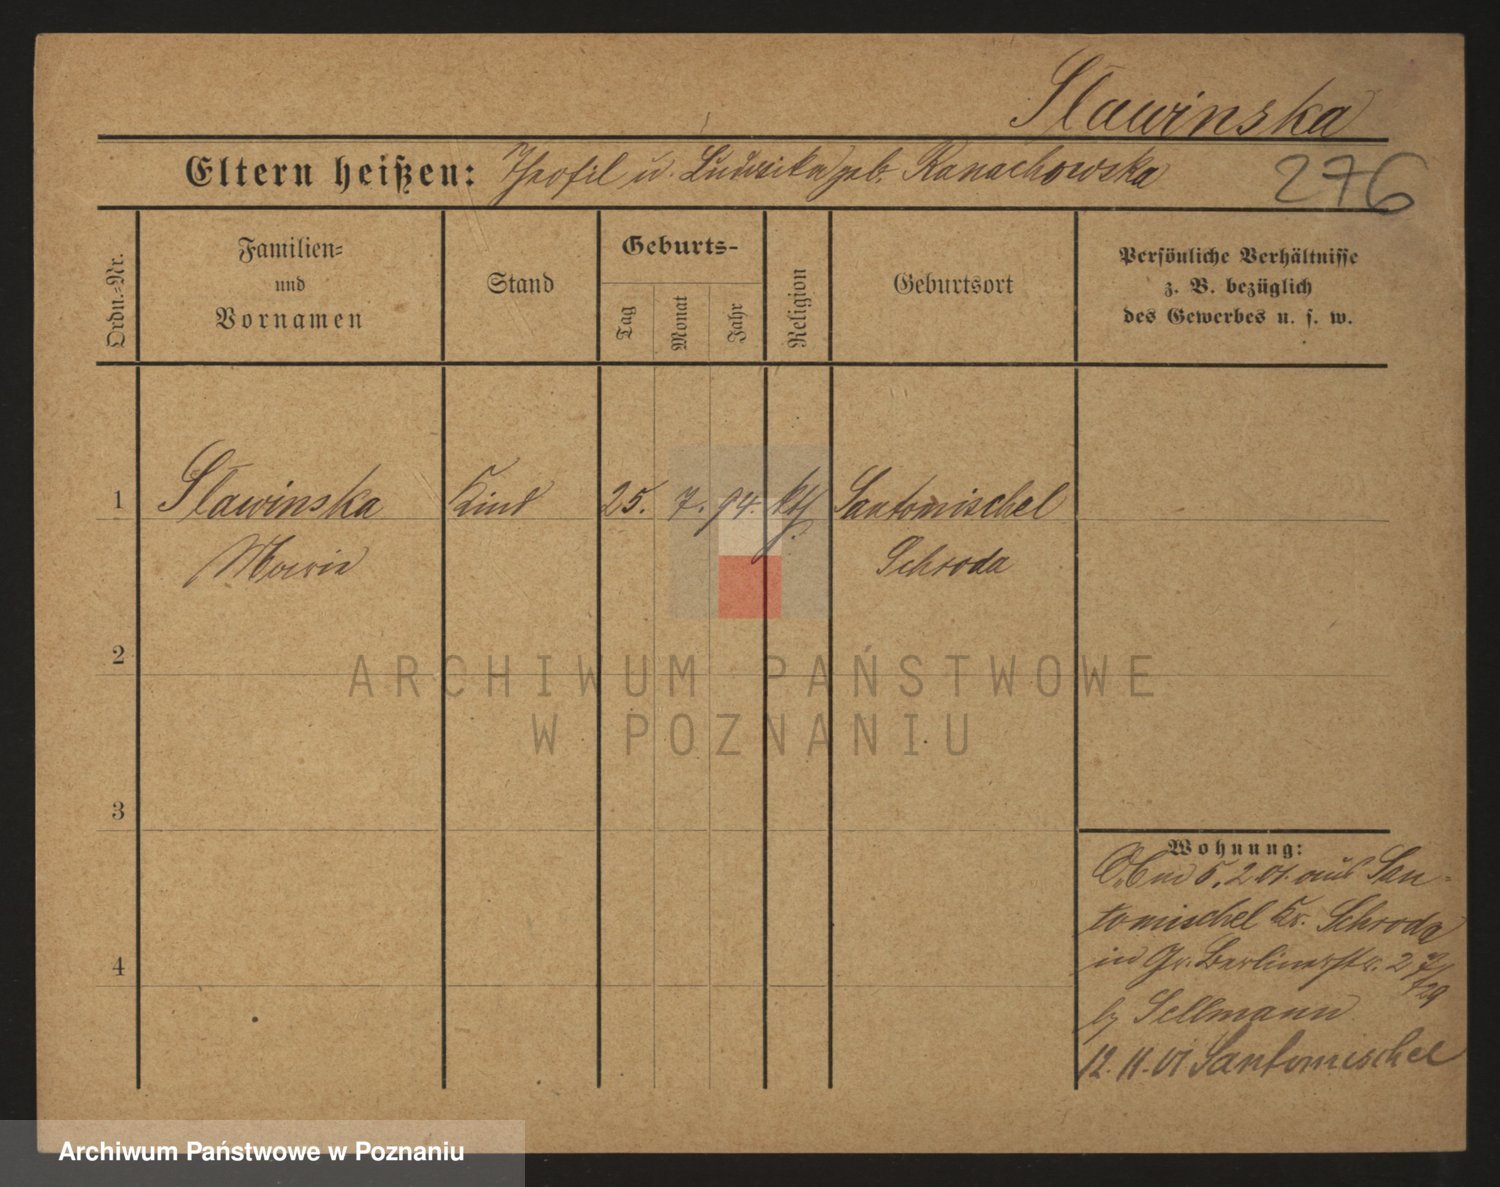 Sławinska
Eltern heißen: Theofil u. Ludwika geb. Kanachowska
276
Ordn.-Nr.
Familien- und Vornamen
Stand
Geburts-
Tag
Monat
Jahr
Religion
Geburtsort
Persönliche Verhältnisse
z. B. bezüglich
des Gewerbes u. s. w.
1 Sławinska Kind 25. 7. 94. kth. Santomischel
Marie Schroda
2
ARCHIWUM PAŃSTWOWE
W POZNANIU
3
Wohnung:
5.2.01. aus San-
tomischel Kr. Schroda
in Gr. Berlinerstr. 27/29
4
b/ Sellmann
12.11.01 Santomischel
Archiwum Państwowe w Poznaniu